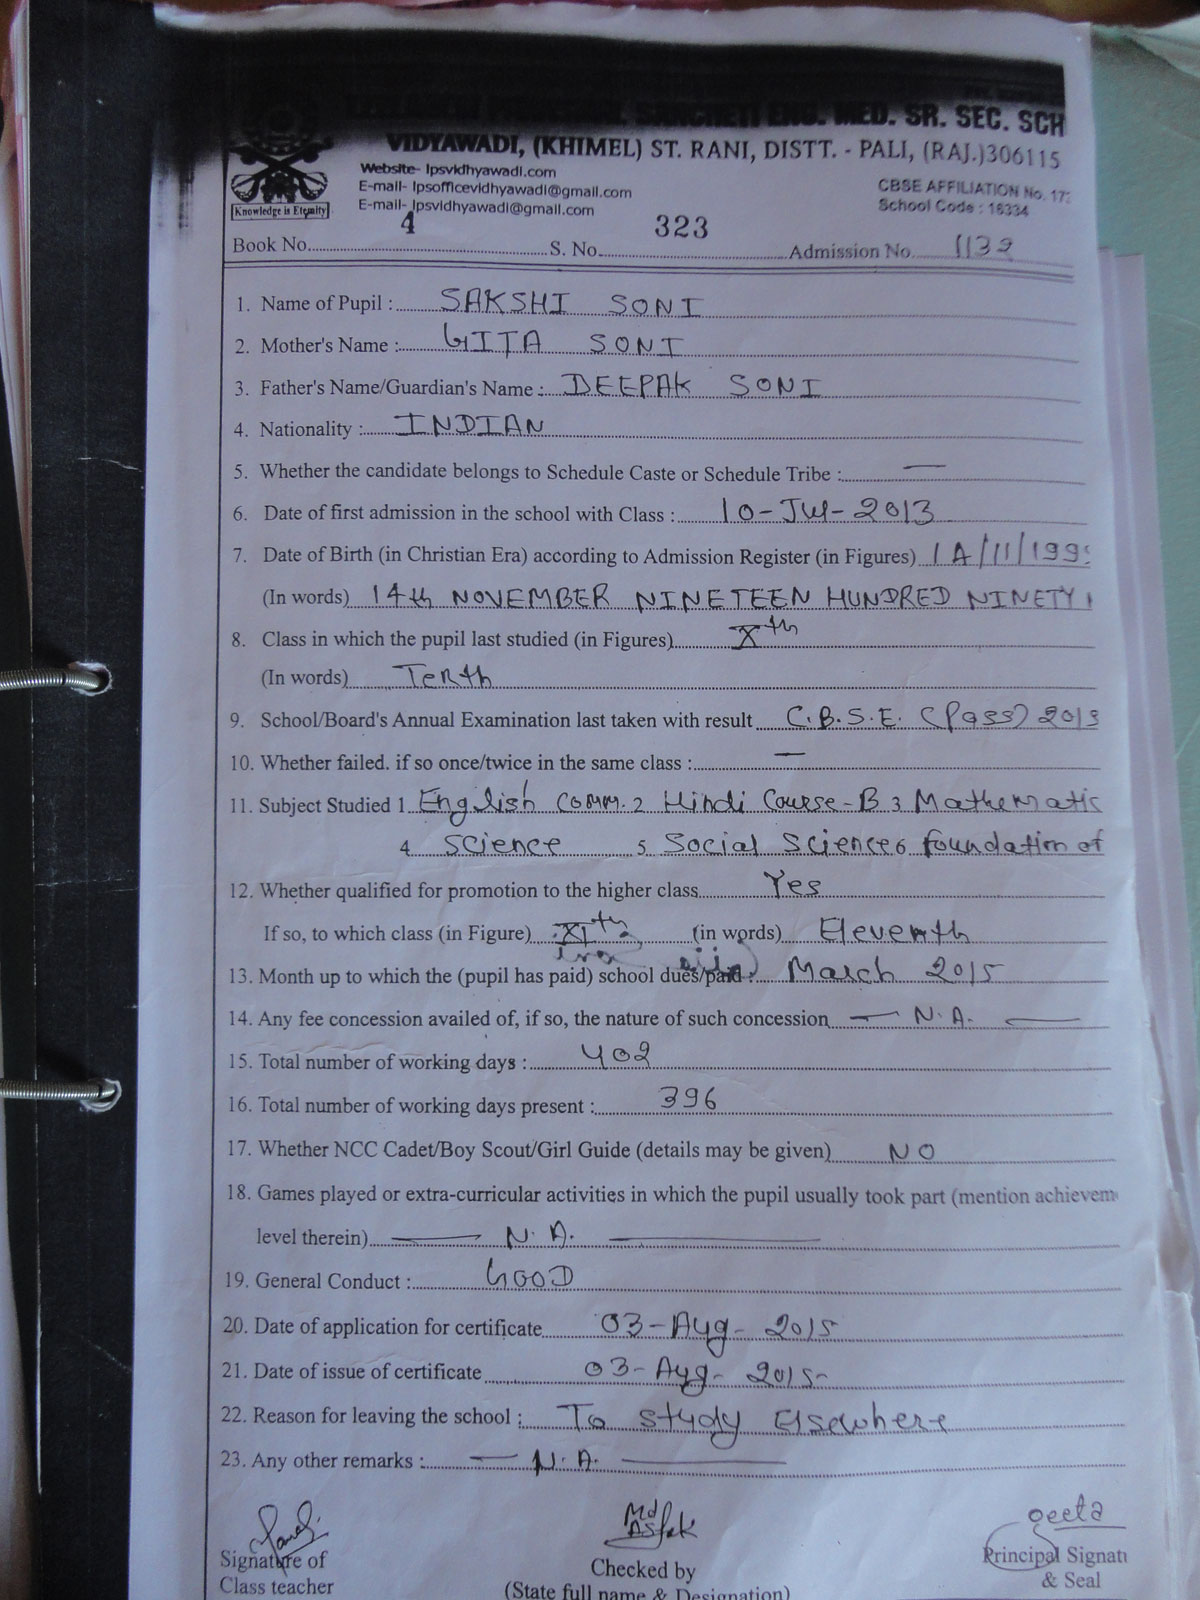 SANCHETI ENG. MED. SR. SEC. SCH
VIDYAWADI, (KHIMEL) ST. RANI, DISTT. - PALI, (RAJ.)306115
Website- lpsvidhyawadi.com
E-mail- lpsofficevidhyawadi@gmail.com
E-mail- lpsvidhyawadi@gmail.com
CBSE AFFILIATION No. 17
School Code : 16334
Knowledge is Eternity
Book No. 4 S. No. 323 Admission No. 1139
1. Name of Pupil : SAKSHI SONI
2. Mother's Name : GITA SONI
3. Father's Name/Guardian's Name : DEEPAK SONI
4. Nationality : INDIAN
5. Whether the candidate belongs to Schedule Caste or Schedule Tribe : —
6. Date of first admission in the school with Class : 10-Jul-2013
7. Date of Birth (in Christian Era) according to Admission Register (in Figures) 14/11/199
(In words) 14th NOVEMBER NINETEEN HUNDRED NINETY
8. Class in which the pupil last studied (in Figures) Xth
(In words) Tenth
9. School/Board's Annual Examination last taken with result C.B.S.E. (Pass) 2015
10. Whether failed. if so once/twice in the same class : —
11. Subject Studied 1. English Comm. 2 Hindi Course-B 3 Mathematic
4 Science 5 Social Science 6 foundation of
12. Whether qualified for promotion to the higher class Yes
If so, to which class (in Figure) XIth (in words) Eleventh
13. Month up to which the (pupil has paid) school dues/paid : March 2015
14. Any fee concession availed of, if so, the nature of such concession — N.A. —
15. Total number of working days : 402
16. Total number of working days present : 396
17. Whether NCC Cadet/Boy Scout/Girl Guide (details may be given) NO
18. Games played or extra-curricular activities in which the pupil usually took part (mention achievem
level therein) — N.A. —
19. General Conduct : GOOD
20. Date of application for certificate 03-Aug-2015
21. Date of issue of certificate 03-Aug-2015
22. Reason for leaving the school : To study Elsewhere
23. Any other remarks : — N.A. —
Md Asfak
geeta
Signature of
Class teacher
Checked by
(State full name & Designation)
Principal Signatu
& Seal